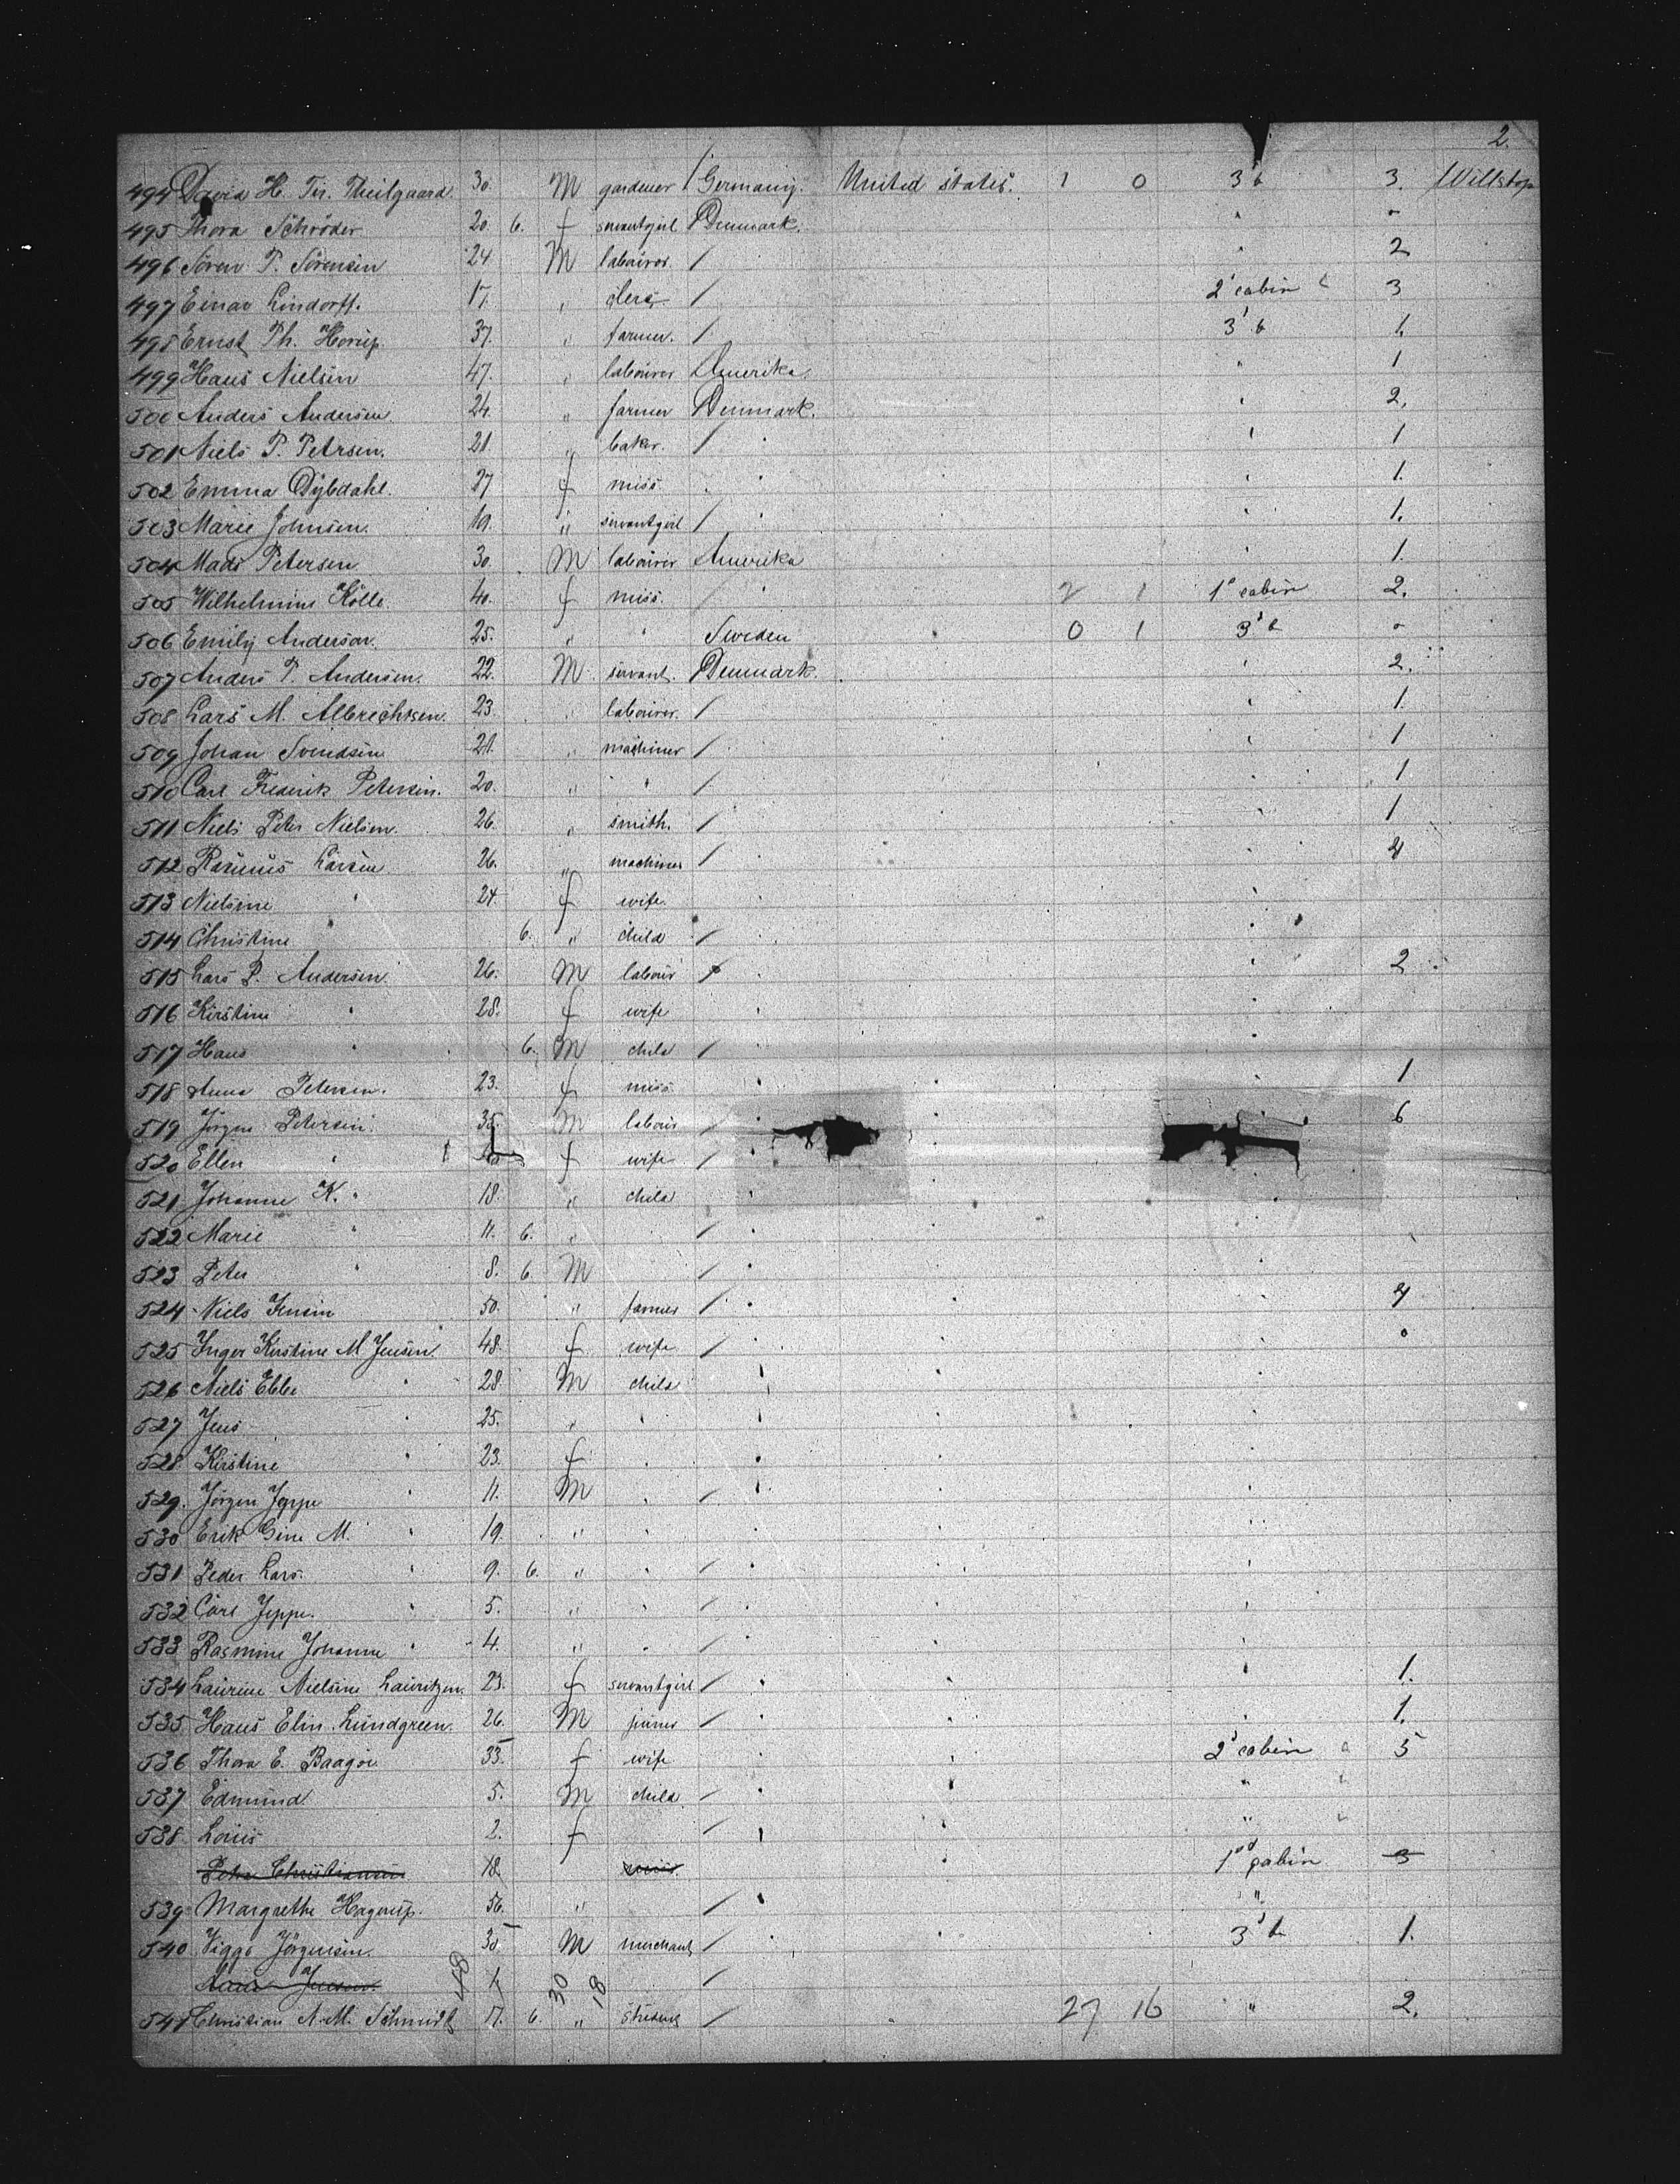 2.
494 David H. Theilgaard. 30. M gardener Germany. United states. 1 0 3 3. Willstop
495 Thora Schröder 20. 6. f servantgirl Denmark. "
496 Sören P. Sörensen 24 M labourer / " 2
497 Einar Lindorff. 17. " / 2' cabin 3
498 Ernst Th. Hörup 37. " farmer. / 3' 1.
499 Hans Nielsen 47. " labourer Amerika. " 1
500 Anders Andersen. 24. " farmer Denmark. " 2.
501 Niels P. Petersen. 21 " baker. / " 1
502 Emma Dybdahl. 27 f miss. " " 1.
503 Marie Johnsen. 19. " servantgirl / " 1.
504 Mads Petersen 30. M labourer Amerika " 1.
505 Wilhelmine Kölle. 40. f miss. / 2 1 1' cabin 2.
506 Emily Anderson. 25. " " Sweden " 0 1 3' "
507 Anders P. Andersen. 22. M servant. Denmark. " 2.
508 Lars M. Albrechtsen. 23. " labourer. / " 1.
509 Johan Svendsen 21. " machiner / " 1
510 Carl Frederik Petersen. 20. " " / " 1
511 Niels Peter Nielsen. 26. " smith. / " 1
512 Rasmus Larsen 26. " machiner / " 4
513 Nielsine " 24. f wife. "
514 Christine " 6. " child / "
515 Lars P. Andersen. 26. M labour / " 2
516 Kirstine " 28. f wife "
517 Hans " 6. M child / "
518 Anna Petersen. 23. f miss. " 1
519 Jörgen Petersen. 35. M labour / " 6
520 Ellen " f wife /
521 Johanne K. " 18. " child "
522 Marie " 11. 6. " / "
523 Peter " 8. 6. M / "
524 Niels Jensen 50. " farmer / " 4
525 Inger Kirstine M Jensen. 48. f wife / "
526 Niels Ebbe " 28 M child " "
527 Jens " 25. " " " "
528 Kirstine " 23. f " " "
529. Jörgen Jeppe " 11. M " / "
530 Erik Gine M. " 19. " " " "
531 Peder Lars. " 9. 6. " " / "
532 Carl Jeppe. " 5. " " / "
533 Rasmine Johanne " 4. " " / "
534 Laurine Nielsine Lauritzen. 23. f servantgirl / " 1.
535 Hans Elin Lundgreen. 26. M joiner / " 1.
536 Thora E. Baagöe 33. f wife " 2' cabin 5
537 Edmund 5. M child / "
538 Louis 2. f / "
Petra Christiansen 18. miss. 1st cabin 3
539 Margrethe Hagerup. 56. " / "
540 Viggo Jörgensen. 35 M merchant / 3' 1.
Jensen 30 18 /
541 Christian N. M. Schmidt 17. 6. " / 27 16 " 2.